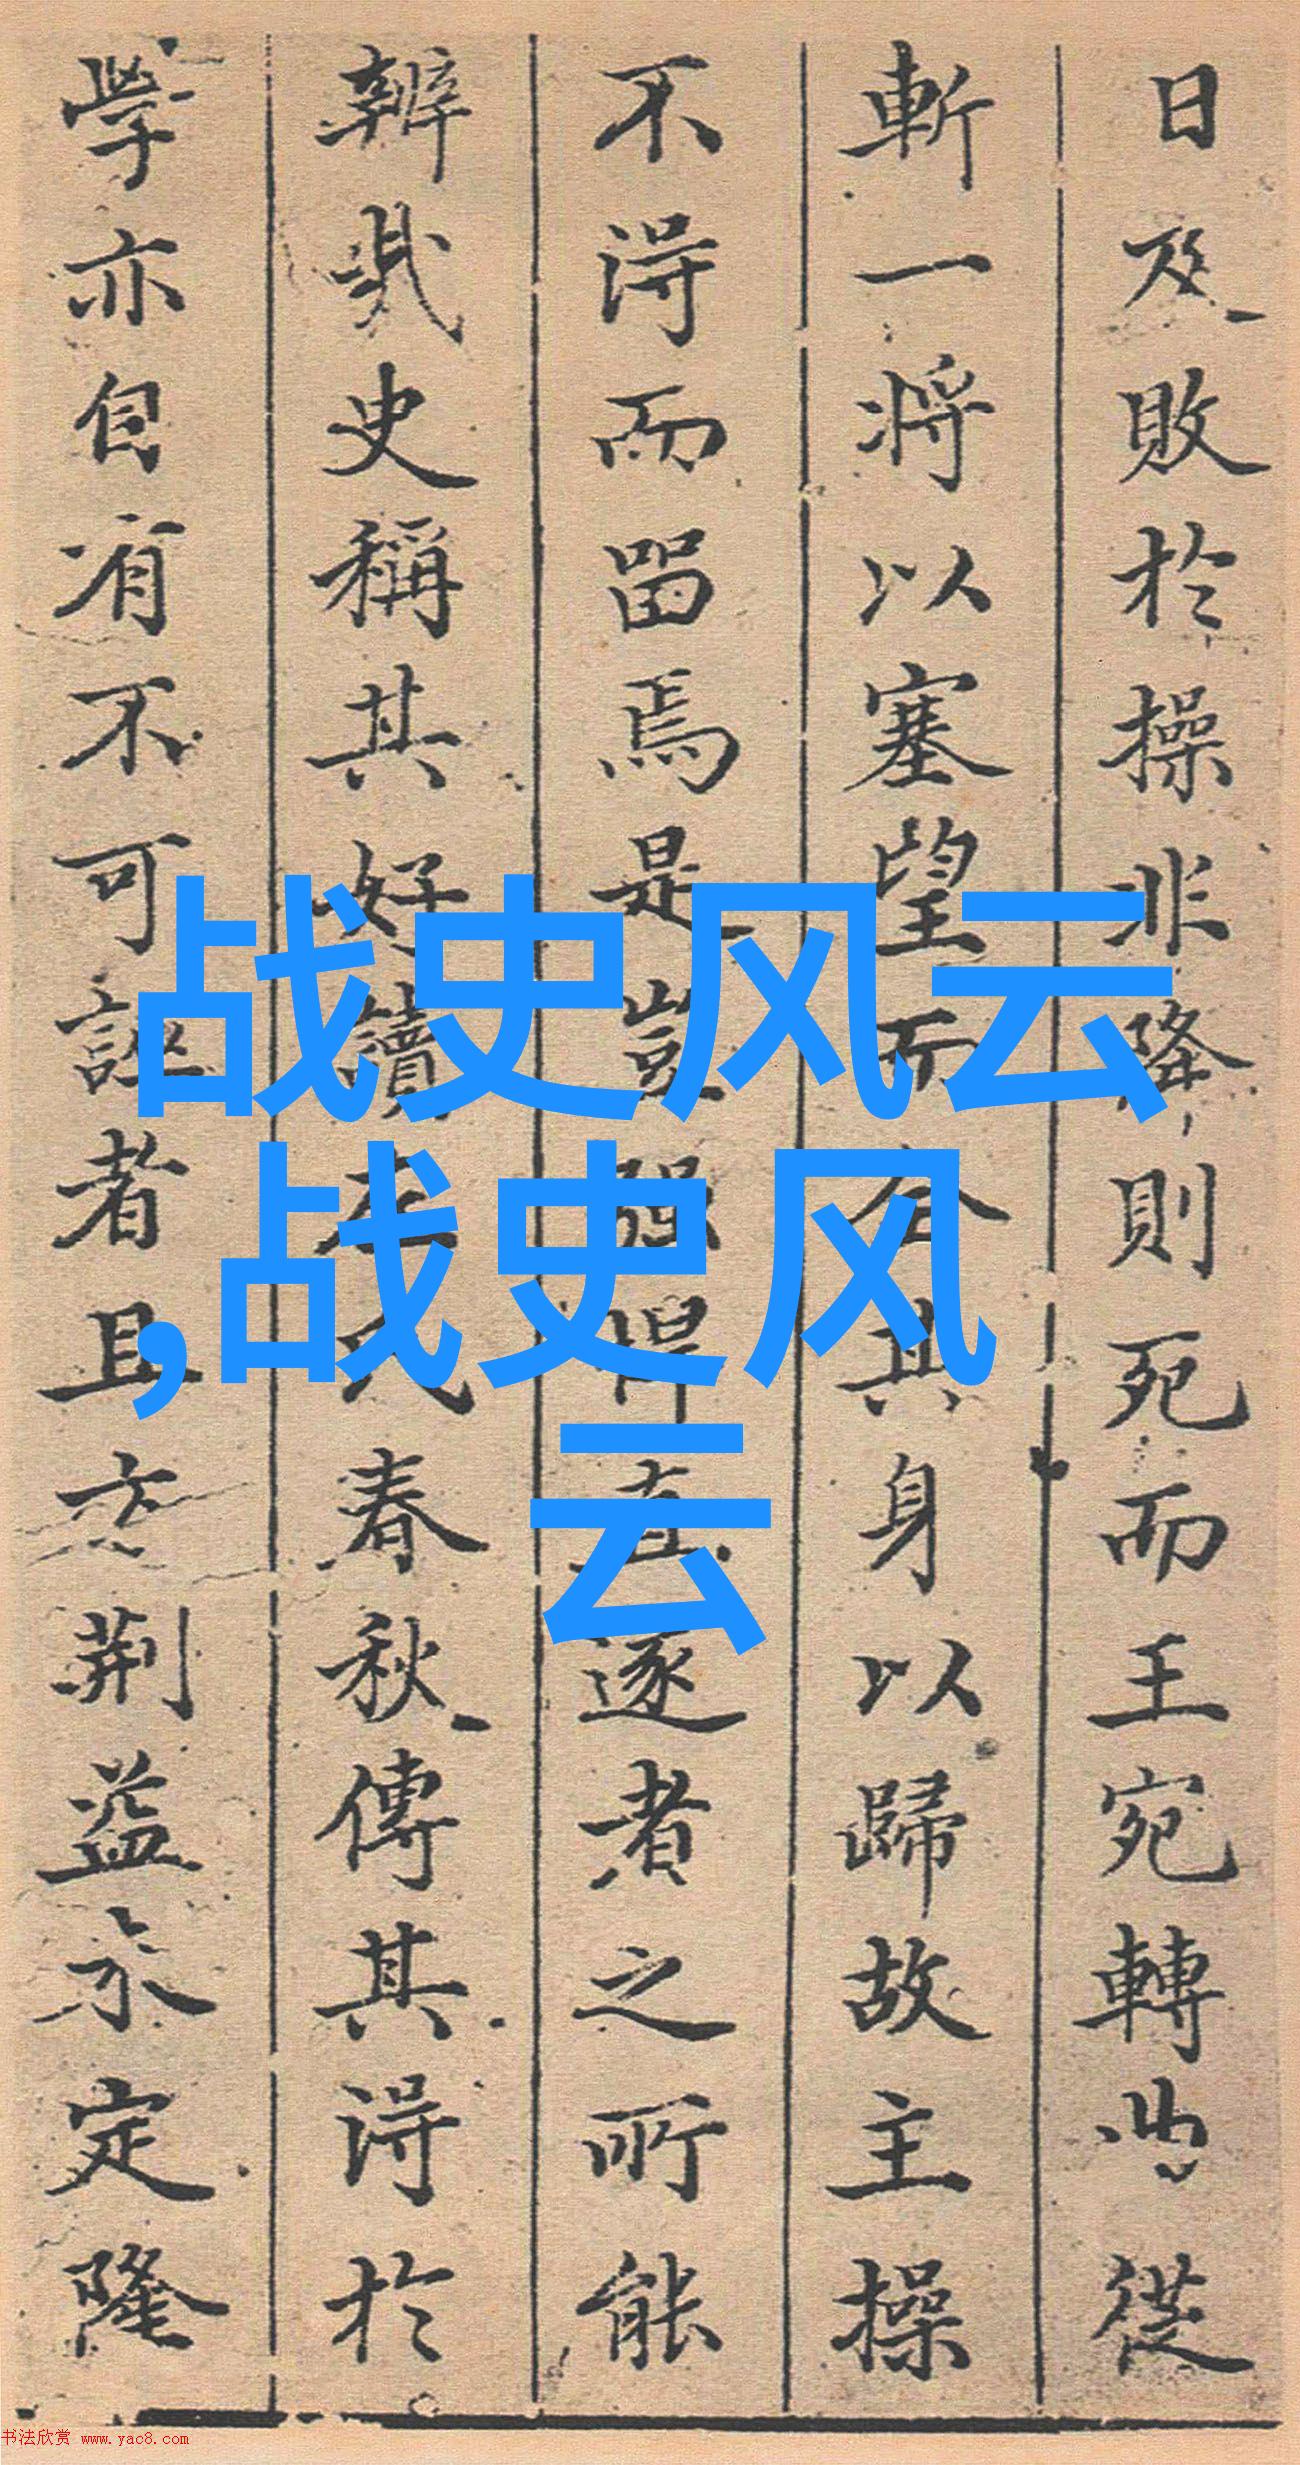 日及敗於操非降則死而王宛轉曲從
斬一将以塞望而全其身以歸故主操
不得而留焉是豈强悍直遂者之所能
辨哉史稱其好讀左氏春秋傳其得於
學亦自有不可誣者且交荆益永定隆
战史风云
,战史风
云
书法欣赏 www.yac8.com